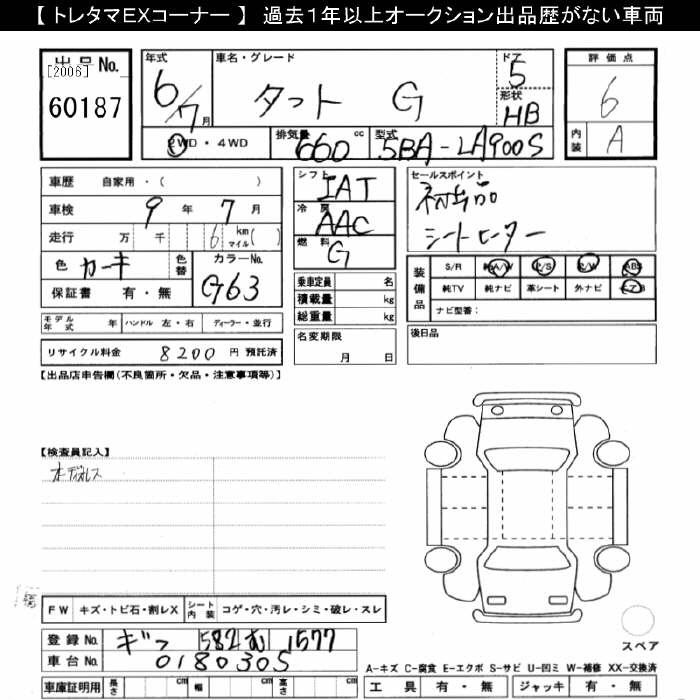 【 トレタマEXコーナー 】 過去1年以上オークション出品歴がない車両
出品 No.
[2006]
60187
年式
6/7月
車名・グレード
タント G
ドア
5
形状
HB
2WD・4WD
排気量
660 cc
型式
5BA-LA900S
評価点
6
内装
A
車歴 自家用・( )
車検 9年 7月
走行 万 千 6 km マイル( )
色 カーキ
色替
カラーNo.
G63
保証書 有・無
モデル年式 年 ハンドル 左・右 ディーラー・並行
リサイクル料金 8200 円 預託済
シフト
IAT
冷房
AAC
燃料
G
乗車定員 名
積載量 kg
総重量 kg
名変期限
月 日
セールスポイント
初出品
シートヒーター
装備品
S/R 純A/W P/S P/W ABS
純TV 純ナビ 革シート 外ナビ
ナビ型番:
後日品
【出品店申告欄(不良箇所・欠品・注意事項等)】
【検査員記入】
FW キズ・トビ石・割レX シート内装 コゲ・穴・汚レ・シミ・破レ・スレ
登録 No. ギフ 582 む 1577
車台 No. 0180305
車庫証明用 長さ cm 幅 cm 高さ cm
スペア
A-キズ C-腐食 E-エクボ S-サビ U-凹ミ W-補修 XX-交換済
工具 有・無 ジャッキ 有・無